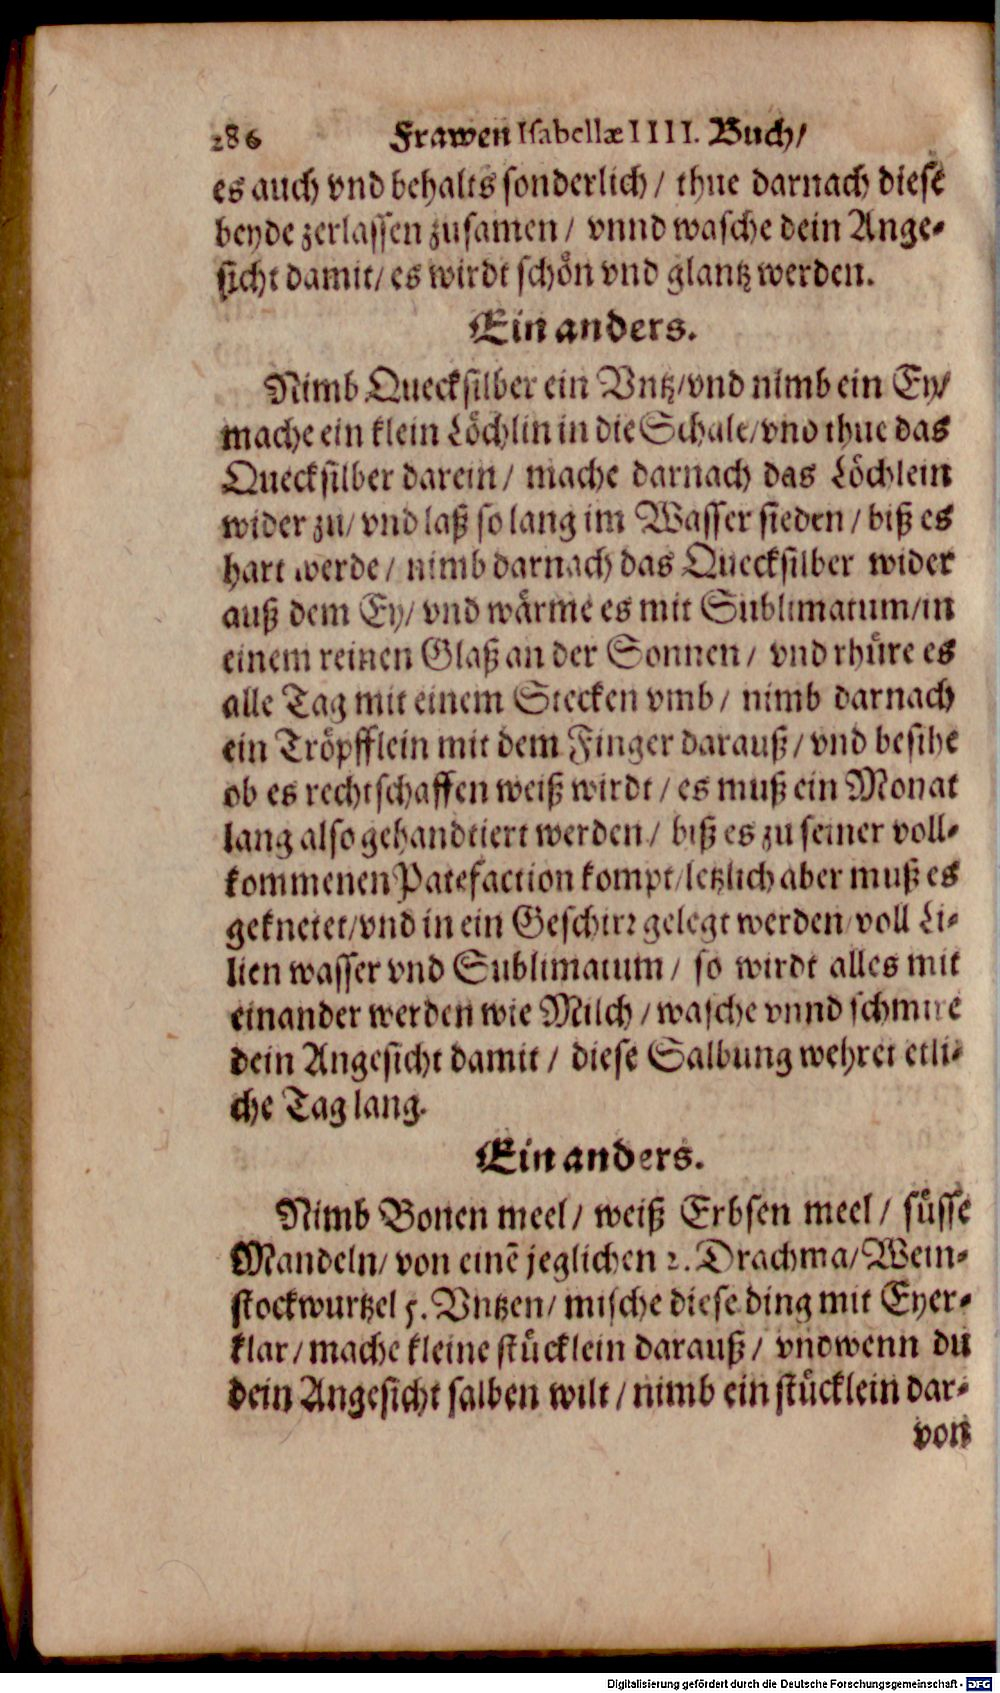 286 Frawen Isabellæ IIII. Buch/
es auch vnd behalts sonderlich / thue darnach diese
beyde zerlassen zusamen / vnnd wasche dein Ange-
sicht damit/ es wirdt schön vnd glantz werden.
Ein anders.
Nimb Quecksilber ein Vntz/ vnd nimb ein Ey/
mache ein klein Löchlin in die Schale/ vnd thue das
Quecksilber darein / mache darnach das Löchlein
wider zu/ vnd laß so lang im Wasser sieden / biß es
hart werde / nimb darnach das Quecksilber wider
auß dem Ey/ vnd wärme es mit Sublimatum/ in
einem reinen Glaß an der Sonnen / vnd rhüre es
alle Tag mit einem Stecken vmb / nimb darnach
ein Tröpfflein mit dem Finger darauß / vnd besihe
ob es rechtschaffen weiß wirdt / es muß ein Monat
lang also gehandtiert werden / biß es zu seiner voll-
kommenen Patefaction kompt/ letzlich aber muß es
geknetet/ vnd in ein Geschirr gelegt werden voll Li-
lien wasser vnd Sublimatum / so wirdt alles mit
einander werden wie Milch / wasche vnnd schmire
dein Angesicht damit / diese Salbung wehret etli-
che Tag lang.
Ein anders.
Nimb Bonen meel / weiß Erbsen meel / süsse
Mandeln/ von einē jeglichen 2. Drachma/ Wein-
stockwurtzel 5. Vntzen/ mische diese ding mit Eyer-
klar / mache kleine stücklein darauß / vnd wenn du
dein Angesicht salben wilt / nimb ein stücklein dar-
von
Digitalisierung gefördert durch die Deutsche Forschungsgemeinschaft - DFG